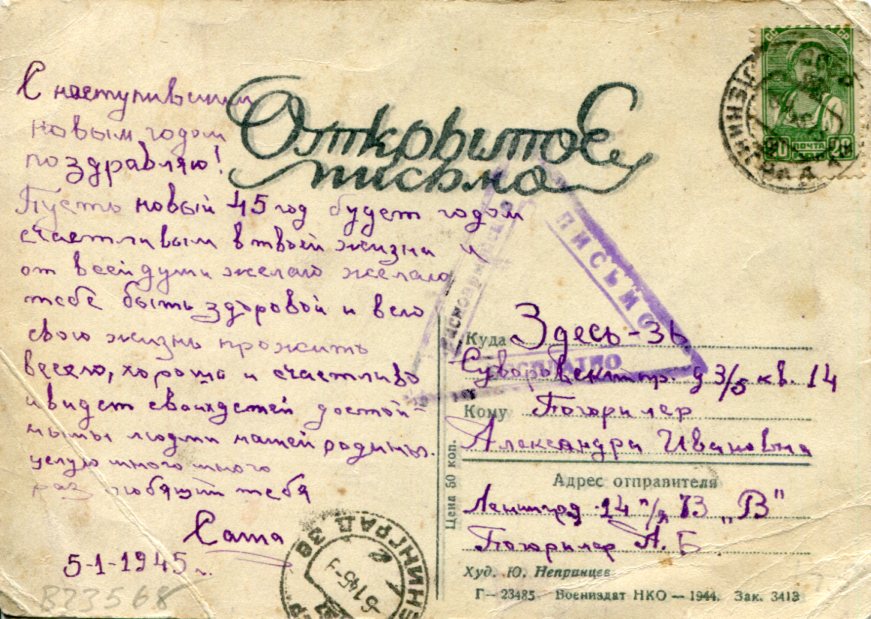 Открытое
письмо
С наступившим
новым годом
поздравляю!
Пусть новый 45 год будет годом
счастливым в твоей жизни и
от всей души желаю желаю
тебе быть здоровой и всю
свою жизнь прожить
весело, хорошо и счастливо
и видет своих детей достой-
ными людми нашей родины.
целую много много
раз любящий тебя
Саша
5-1-1945 г.
20 ПОЧТА 20
ЛЕНИНГРАД
Красноармейское
ПИСЬМО
БЕСПЛАТНО
Куда Здесь-34
Суворовский пр. д 3/5 кв. 14
Кому Погорилер
Александра Ивановна
Цена 50 коп.
Адрес отправителя
Ленинград-14 п/я 73 "В"
Погорилер А. Б.
Худ. Ю. Непринцев
Г—23485 Воениздат НКО—1944. Зак. 3413
ЛЕНИНГРАД 36
6145
B23568